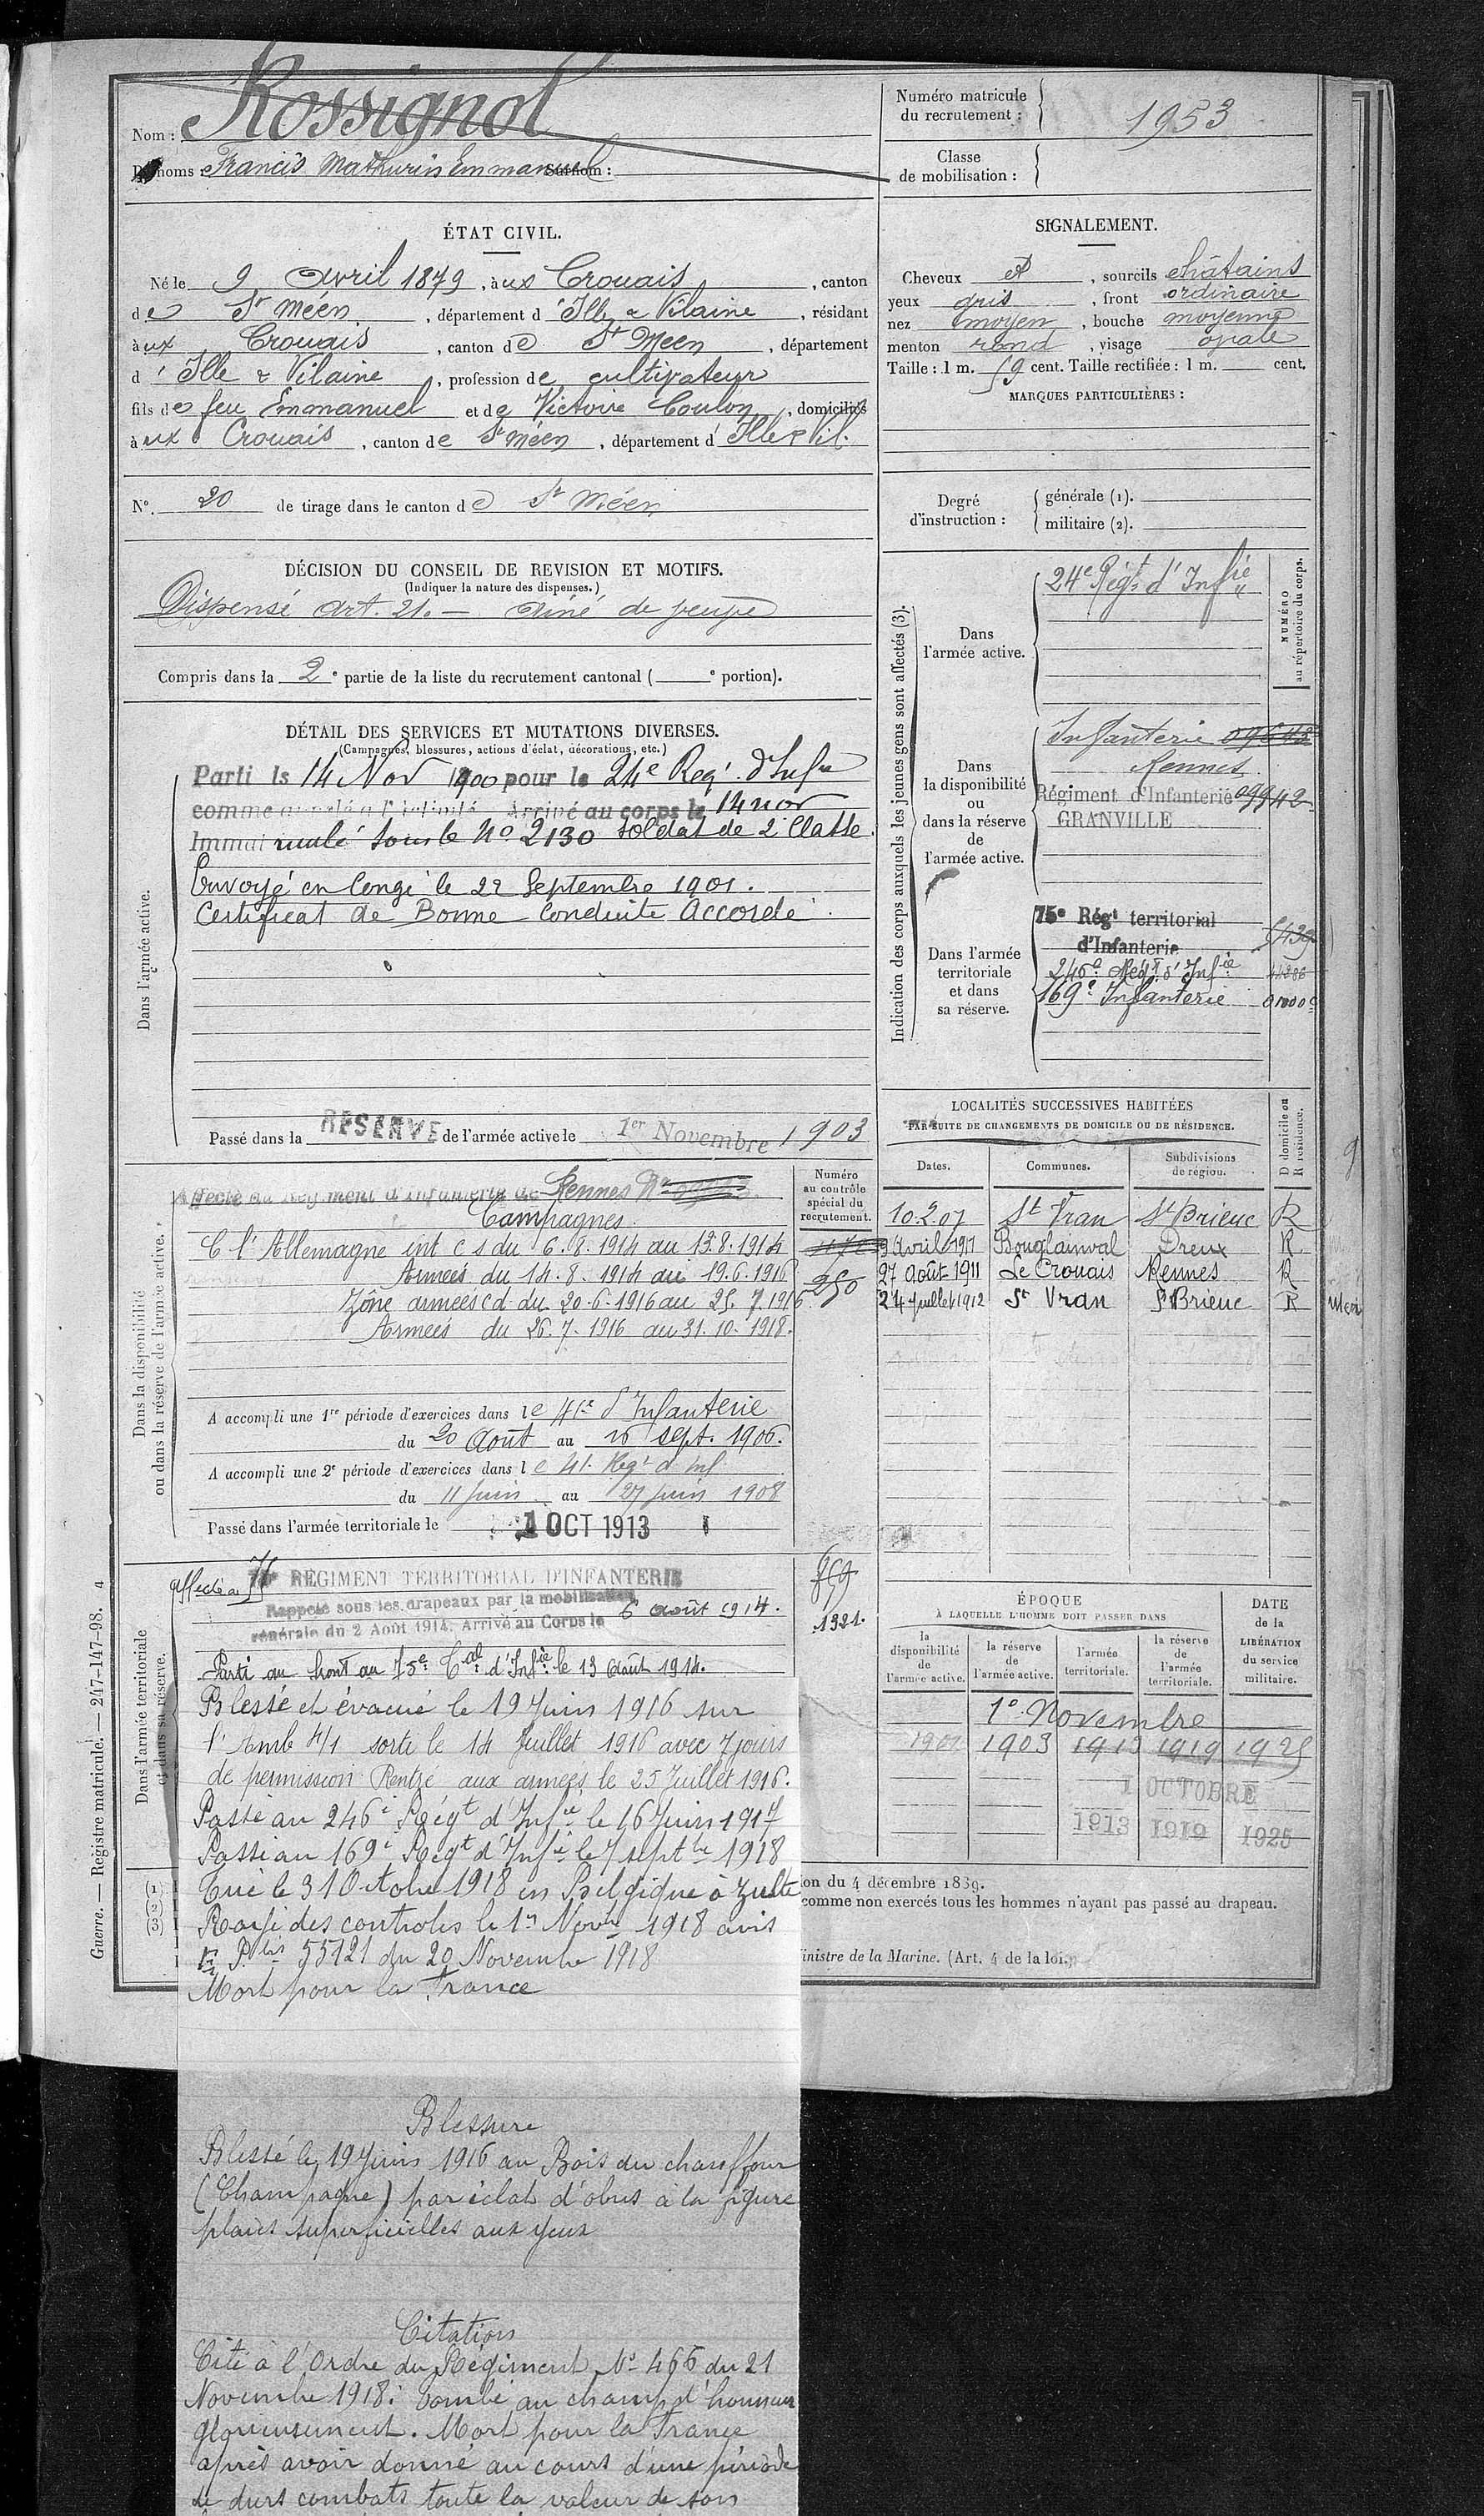 Nom : Rossignol
Prénoms : Francis Mathurin Emmanuel Surnom :
Numéro matricule du recrutement : 1953
Classe de mobilisation :
ÉTAT CIVIL.
Né le 9 Avril 1879, à ux Crouais, canton
de St Méen, département d'Ille & Vilaine, résidant
à ux Crouais, canton de St Méen, département
d'Ille & Vilaine, profession de cultivateur
fils de feu Emmanuel et de Victoire Coulon, domiciliés
à ux Crouais, canton de St Méen, département d'Ille & Vil.
N° 20 de tirage dans le canton de St Méen
DÉCISION DU CONSEIL DE REVISION ET MOTIFS.
(Indiquer la nature des dispenses.)
Dispensé Art. 21. — Aîné de veuve
Compris dans la 2e partie de la liste du recrutement cantonal ( e portion).
SIGNALEMENT.
Cheveux et, sourcils châtains
yeux gris, front ordinaire
nez moyen, bouche moyenne
menton rond, visage ovale
Taille : 1 m. 59 cent. Taille rectifiée : 1 m. cent.
MARQUES PARTICULIÈRES :
Degré d'instruction : générale (1).
militaire (2).
DÉTAIL DES SERVICES ET MUTATIONS DIVERSES.
(Campagnes, blessures, actions d'éclat, décorations, etc.)
Dans l'armée active.
Parti le 14 Nov 1900 pour le 24e Regt d'Infie
comme appelé à l'activité Arrivé au corps le 14 nov
Immatriculé sous le No 2130 soldat de 2e Classe.
Envoyé en Congé le 22 Septembre 1901.
Certificat de Bonne Conduite Accordé.
Passé dans la RÉSERVE de l'armée active le 1er Novembre 1903
Indication des corps auxquels les jeunes gens sont affectés (3).
NUMÉRO au répertoire du corps.
Dans l'armée active.
24e Régt d'Infie
Dans la disponibilité ou dans la réserve de l'armée active.
Infanterie
Rennes
Régiment d'Infanterie 09942
GRANVILLE
Dans l'armée territoriale et dans sa réserve.
75e Régt territorial
d'Infanterie
246e Regt d'Infie
169e Infanterie
LOCALITÉS SUCCESSIVES HABITÉES
PAR SUITE DE CHANGEMENTS DE DOMICILE OU DE RÉSIDENCE.
Dates. Communes. Subdivisions de région. D domicile ou R résidence.
10.2.07 St Vran St Brieuc R
9 Avril 1911 Bouglainval Dreux R
27 Août 1911 Le Crouais Rennes R
24 Juillet 1912 St Vran St Brieuc R
Dans la disponibilité ou dans la réserve de l'armée active.
Numéro au contrôle spécial du recrutement.
Affecté au Régiment d'Infanterie de Rennes No
Campagnes
C l'Allemagne int c s du 6.8.1914 au 13.8.1914
Armées du 14.8.1914 au 19.6.1916
250
Zône armées c d du 20.6.1916 au 25.7.1916
Armées du 26.7.1916 au 31.10.1918.
A accompli une 1re période d'exercices dans le 41e d'Infanterie
du 20 Août au 16 sept. 1906.
A accompli une 2e période d'exercices dans le 41e Regt d'Inf
du 11 Juin au 27 Juin 1908
Passé dans l'armée territoriale le 1 OCT 1913
Dans l'armée territoriale et dans sa réserve.
affecté au 75e RÉGIMENT TERRITORIAL D'INFANTERIE
Rappelé sous les drapeaux par la mobilisation
générale du 2 Août 1914. Arrivé au Corps le 6 août 1914.
1321.
Parti au front au 75e Cal d'Infie le 13 Août 1914.
Blessé et évacué le 19 Juin 1916 sur
l'Amb 4/1 sorti le 14 Juillet 1916 avec 7 jours
de permission Rentré aux armées le 25 Juillet 1916.
Passé au 246e Régt d'Infie le 16 Juin 1917
Passé au 169e Régt d'Infie le 7 septbre 1918
Tué le 31 Octobre 1918 en Belgique à Zulte
Rayé des controles le 1er Novbre 1918 avis
55121 du 20 Novembre 1918
Mort pour la France
ÉPOQUE
À LAQUELLE L'HOMME DOIT PASSER DANS
DATE de la LIBÉRATION du service militaire.
la disponibilité de l'armée active. la réserve de l'armée active. l'armée territoriale. la réserve de l'armée territoriale.
1er Novembre
1901 1903 1913 1919 1925
1 OCTOBRE
1913 1919 1925
(1)
(2)
(3)
ion du 4 décembre 1889.
comme non exercés tous les hommes n'ayant pas passé au drapeau.
inistre de la Marine. (Art. 4 de la loi.)
Guerre. — Registre matricule. — 247-147-98. 4
Blessure
Blessé le 19 Juin 1916 au Bois du chauffour
(Champagne) par éclat d'obus à la figure
plaies superficielles aux yeux
Citation
Cité à l'Ordre du Régiment No 466 du 21
Novembre 1918 : Tombé au champ d'honneur
glorieusement. Mort pour la France
après avoir donné au cours d'une période
de durs combats toute la valeur de son